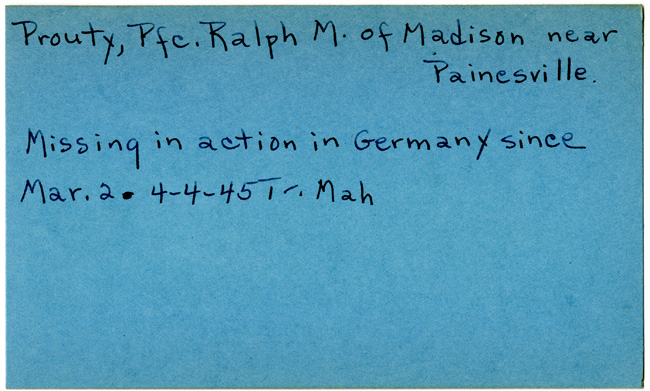 Prouty, Pfc. Ralph M. of Madison near
Painesville.
Missing in action in Germany since
Mar. 2. 4-4-45 T-. Mah